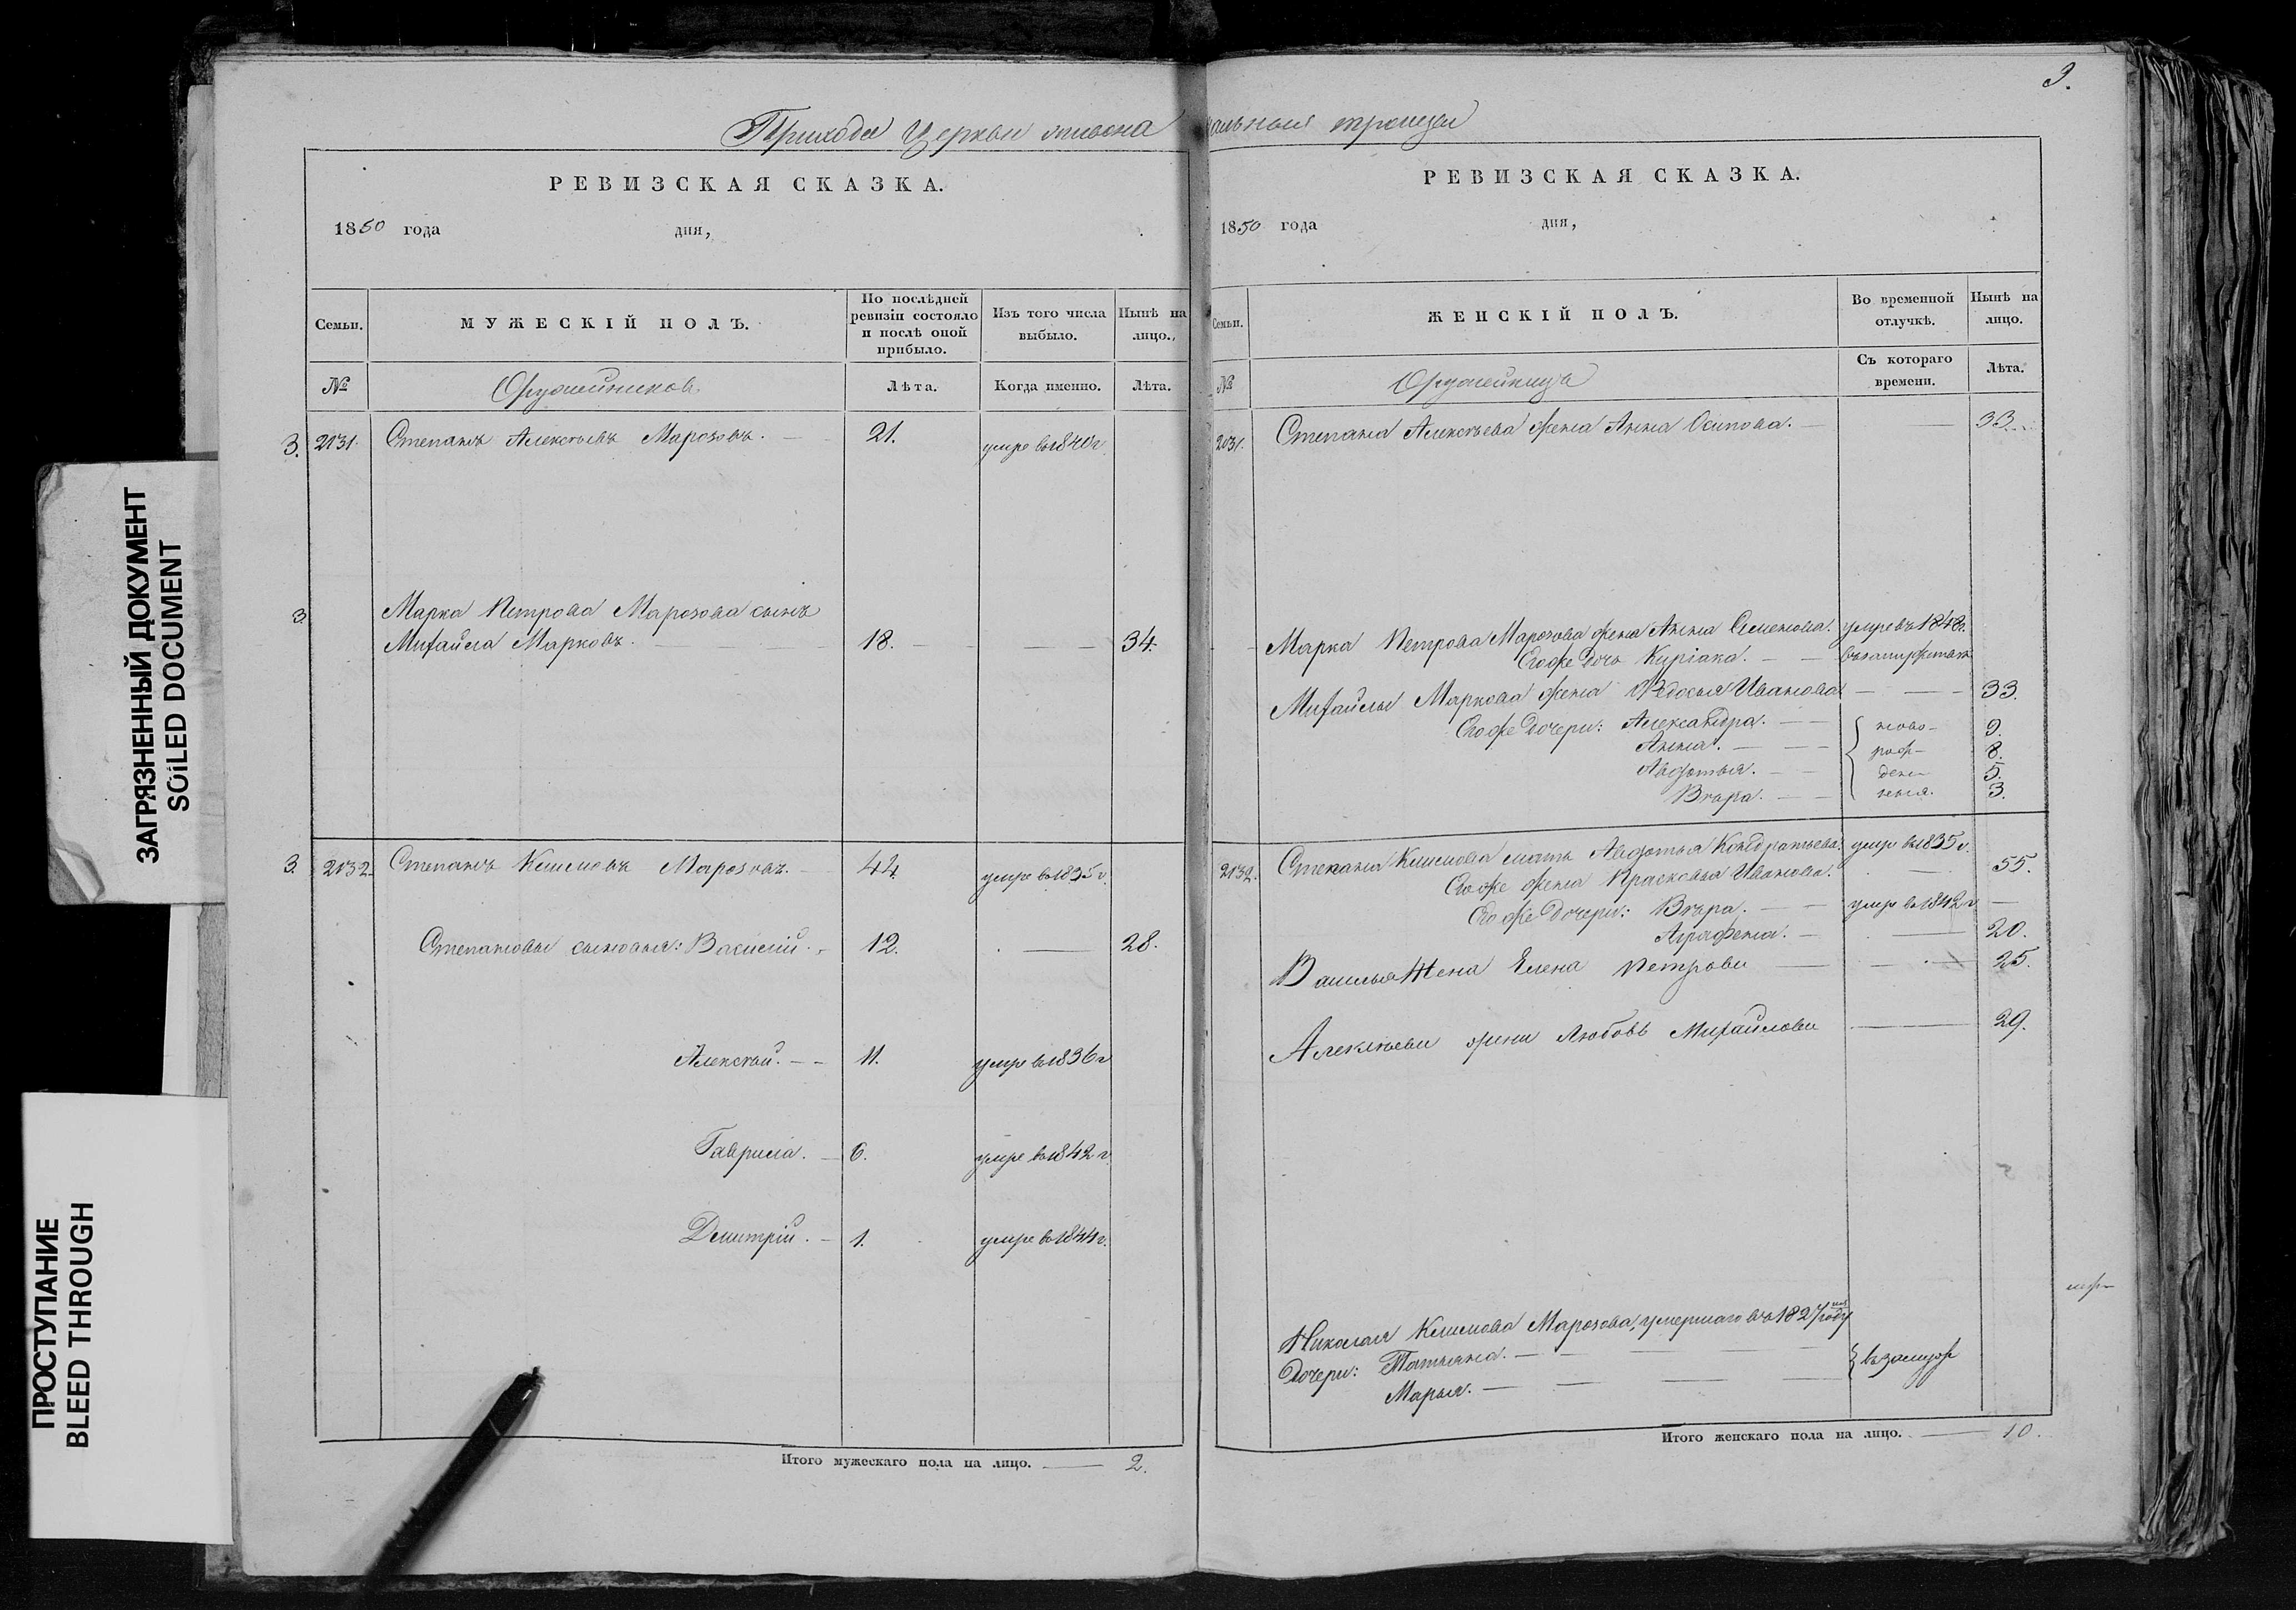 3.
Прихода Церкви живона
чальныя троицы
РЕВИЗСКАЯ СКАЗКА.
1850 года дня,
Семьи.
МУЖЕСКІЙ ПОЛЪ.
По послѣдней ревизіи состояло и послѣ оной прибыло.
Изъ того числа выбыло.
Нынѣ на лицо.
№
Оружейниковъ
Лѣта.
Когда именно.
Лѣта.
3. 2131. Степанъ Алексѣевъ Марозовъ. 21. умре въ 1840 г.
3. Марка Петрова Марозова сынъ
Михайла Марковъ. 18. 34.
3. 2132. Степанъ Климовъ Марозовъ. 44. умре въ 1835 г.
Степановы сыновья: Василій. 12. 28.
Алексѣй. 11. умре въ 1836 г
Гаврила. 6. умре въ 1842 г.
Дмитрій. 1. умре въ 1844 г.
Итого мужескаго пола на лицо. 2.
РЕВИЗСКАЯ СКАЗКА.
1850 года дня,
Семьи.
ЖЕНСКІЙ ПОЛЪ.
Во временной отлучкѣ.
Нынѣ на лицо.
№
Оружейница
Съ котораго времени.
Лѣта.
2131. Степана Алексѣева жена Анна Осипова. 33.
Марка Петрова Марозова жена Анна Семенова. умре въ 1848 г.
Егоже дочь Киріака. въ замужествѣ
Михайлы Маркова жена Федосья Иванова 33
Егоже дочери: Александра. ново- 9.
Анна. рож- 8.
Авдотья. ден- 5.
Вѣра. ныя. 3.
2132. Степана Климова мать Авдотья Кондратьева. умре въ 1835 г.
Егоже жена Прасковья Иванова. 55.
Егоже дочери: Вѣра. умре въ 1842 г
Аграфена. 20.
Василья жена Елена Петрова 25.
Алексѣева жена Любовь Михайлова 29.
Николая Климова Марозова, умершаго въ 1827 году
Дочери: Татьяна.
Марья.
въ замуж
Итого женскаго пола на лицо. 10.
ЗАГРЯЗНЕННЫЙ ДОКУМЕНТ
SOILED DOCUMENT
ПРОСТУПАНИЕ
BLEED THROUGH